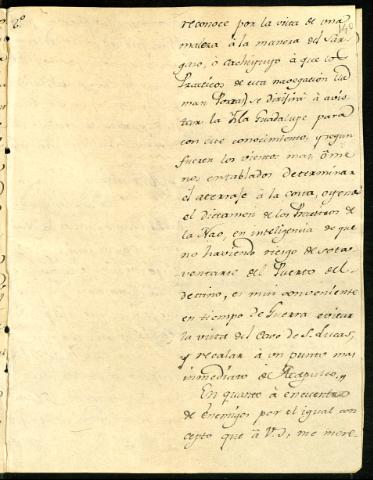 8º
reconoce por la vista de una
maleza à la manera del Sar-
gazo, ò Cachiyuyo à que los
Practicos de esta navegación lla
man Porra) se dirijirá à avis
tar la Ysla Guadalupe para
con este conocimiento, y segun
fueren los vientos mas, ò me
nos entablados determinar
el aterraje à la costa, oyendo
el Dictamen de los Practicos de
la Nao, en inteligencia de que
no haviendo riesgo de sota
ventarse del Puerto del
destino, es mui conveniente
en tiempo de Guerra evitar
la vista del Cavo de S. Lucas,
y recalar à un punto mas
inmediato de Acapulco.,,
En quanto à encuentro
de Enemigos por el igual con
cepto que à V.S, me mere-